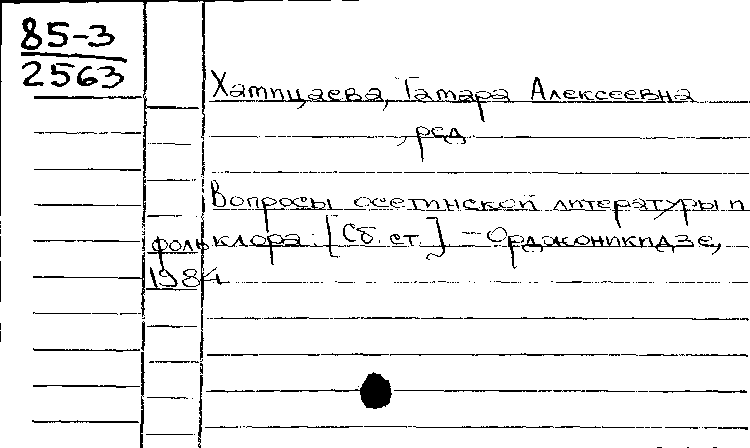 85-3
2563
Хамицаева, Тамара Алексеевна
, ред.
Вопросы осетинской литературы и
фольклора: [Сб. ст.] – Орджоникидзе,
1984